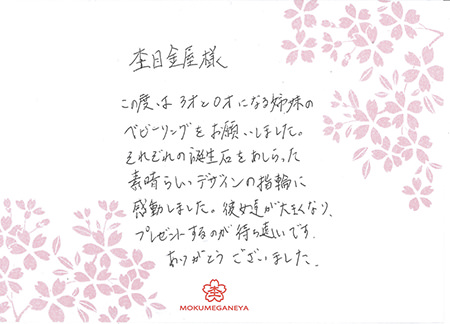 杢目金屋様
この度は3才と0才になる姉妹の
ベビーリングをお願いしました。
それぞれの誕生石をあしらった
素晴らしいデザインの指輪に
感動しました。彼女達が大きくなり、
プレゼントするのが待ち遠いです.
ありがとうございました.
MOKUMEGANEYA